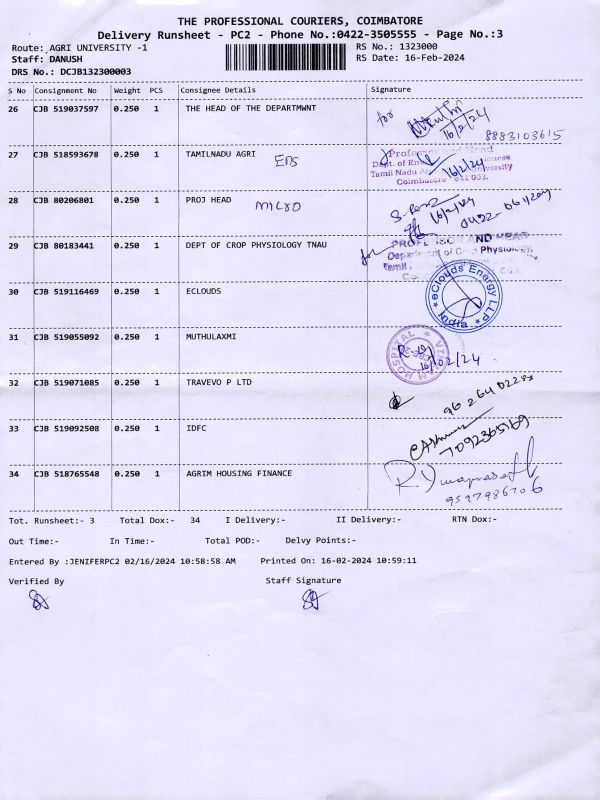 THE PROFESSIONAL COURIERS, COIMBATORE
Delivery Runsheet - PC2 - Phone No.:0422-3505555 - Page No.:3
Route: AGRI UNIVERSITY -1 RS No.: 1323000
Staff: DANUSH RS Date: 16-Feb-2024
DRS No.: DCJB132300003
S No Consignment No Weight PCS Consignee Details Signature
26 CJB 519037597 0.250 1 THE HEAD OF THE DEPARTMWNT for 16/2/24
8883103615
27 CJB 518593678 0.250 1 TAMILNADU AGRI ENS
Professor and Head
Dept. of
Tamil Nadu University 16/2/24
Coimbatore - 641 003.
28 CJB 80206801 0.250 1 PROJ HEAD MICRO 16/2/24
29 CJB 80183441 0.250 1 DEPT OF CROP PHYSIOLOGY TNAU for
PROFESSOR AND HEAD
Department of Crop Physiology,
Tamil
30 CJB 519116469 0.250 1 ECLOUDS eClouds Energy LLP India
31 CJB 519055092 0.250 1 MUTHULAXMI HOSPITAL 16/02/24
32 CJB 519071085 0.250 1 TRAVEVO P LTD
33 CJB 519092508 0.250 1 IDFC 7092365169
34 CJB 518765548 0.250 1 AGRIM HOUSING FINANCE
9597986706
Tot. Runsheet:- 3 Total Dox:- 34 I Delivery:- II Delivery:- RTN Dox:-
Out Time:- In Time:- Total POD:- Delvy Points:-
Entered By :JENIFERPC2 02/16/2024 10:58:58 AM Printed On: 16-02-2024 10:59:11
Verified By Staff Signature